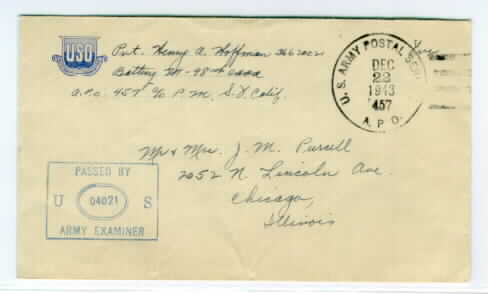 USO
Pvt. Henry A. Hoffman
Battery M-98th
A.P.O. 457 c/o P.M. S.F. Calif.
Free
U. S. ARMY POSTAL
DEC
22
1943
457
A. P. O.
Mr & Mrs. J. M. Purcell
2052 N. Lincoln Ave.
Chicago,
Illinois
PASSED BY
U 04021 S
ARMY EXAMINER